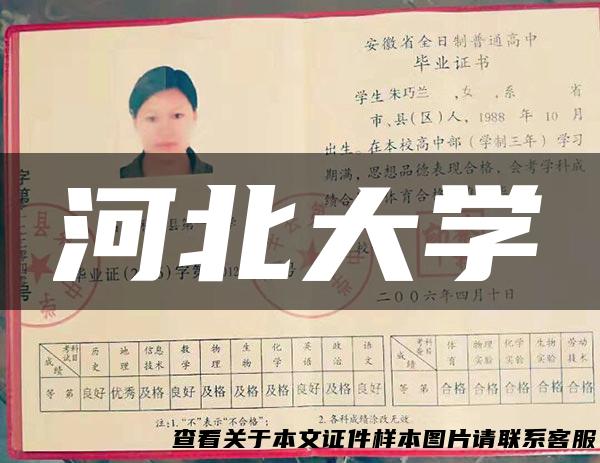 安徽省全日制普通高中
毕业证书
学生 朱巧兰 ,女 ,系 省
市、县(区)人, 1988 年 10 月
出生。在本校高中部(学制三年)学习
期满,思想品德表现合格,会考学科成
河北大学
毕业证
字第
号
校
二00六年四月十日
考科 成绩 历史 地理 信息技术 数学 物理 生物 化学 英语 政治 语文
等第 良好 优秀 及格 良好 及格 及格 及格 良好 及格 良好
考科 成绩 体育 物理实验 化学实验 生物实验 劳动技术
等第 合格 合格 合格 合格 合格
注:1."不"表示"不合格"; 2.各科成绩涂改无效。
查看关于本文证件样本图片请联系客服